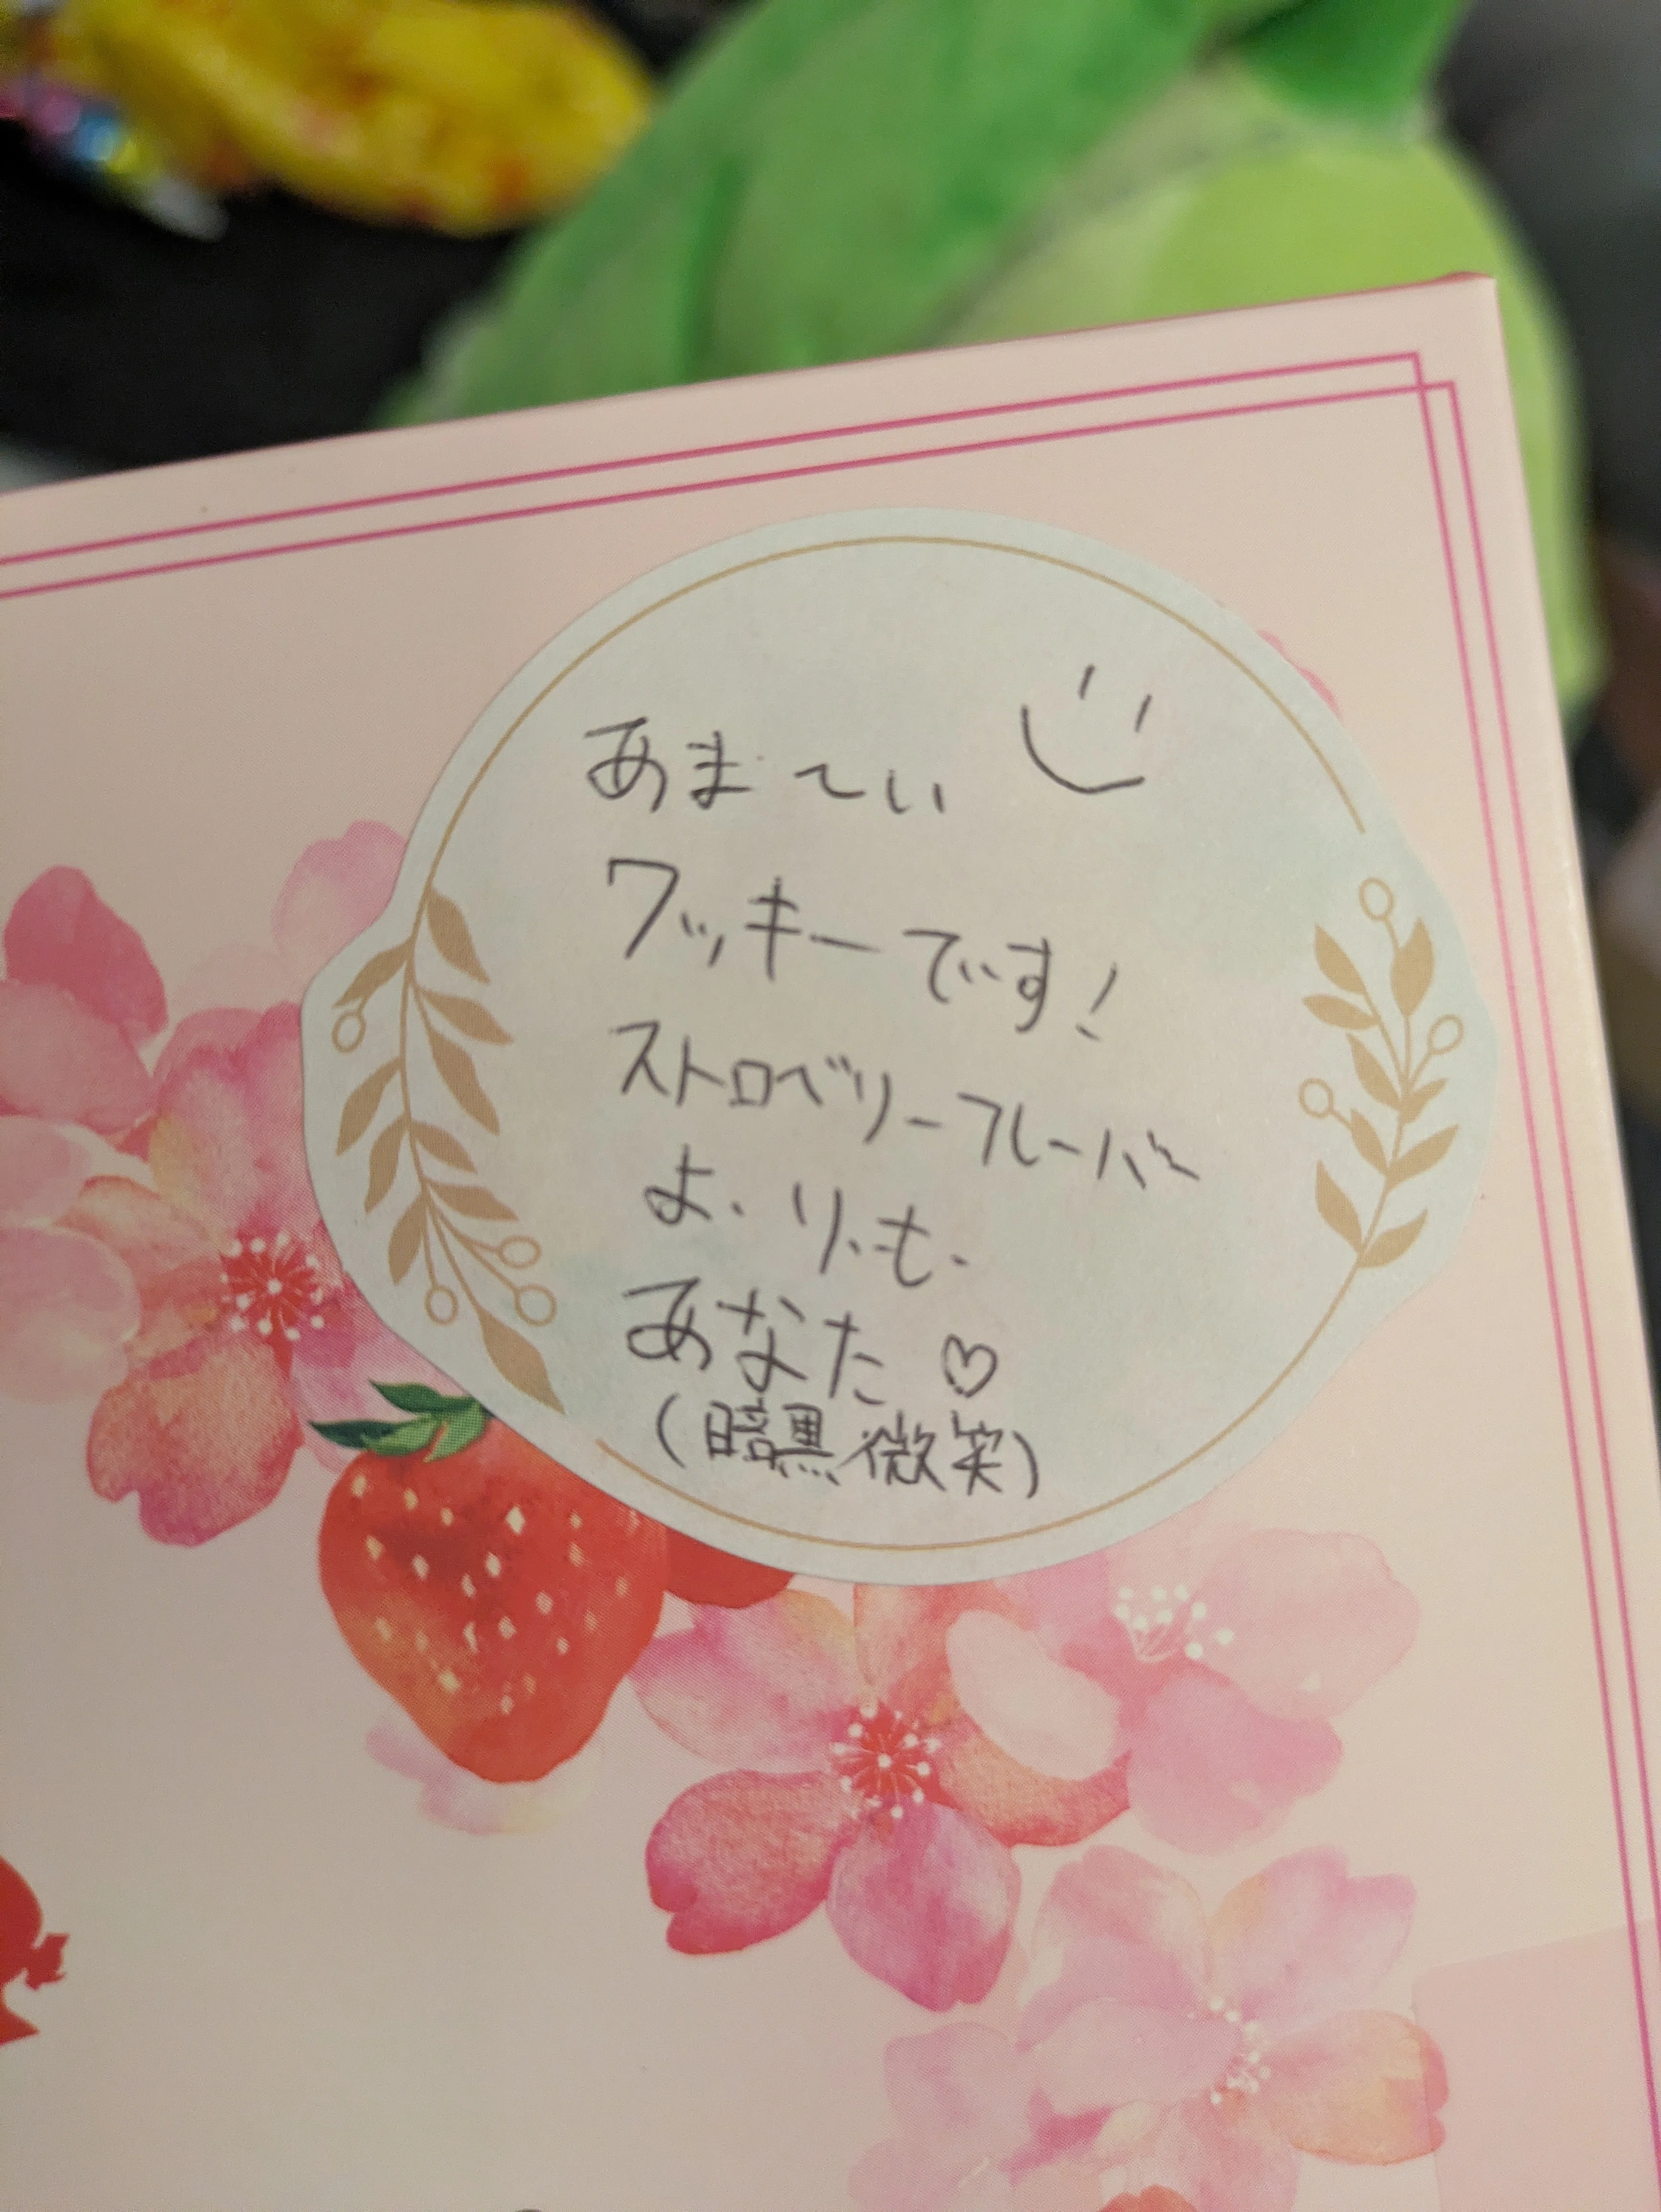 あま〜い
クッキーです!
ストロベリーフレーバー
よ・り・も・
あなた♡
(暗黒微笑)